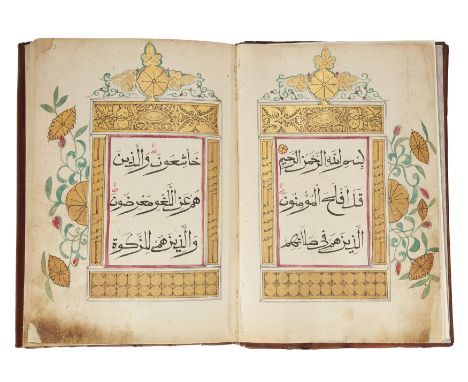 بسم الله الرحمن الرحيم
قد افلح المؤمنون
الذين هم في صلاتهم
خاشعون والذين
هم عن اللغو معرضون
والذين هم للزكوة